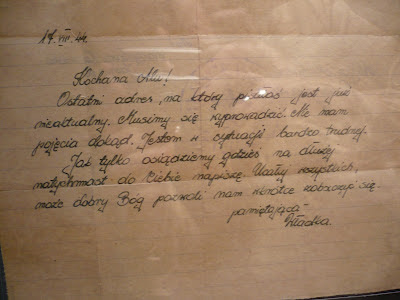 17.VIII.44.
Kochana Alu!
Ostatni adres, na który pisałaś jest już
nieaktualny. Musimy się wyprowadzić. Nie mam
pojęcia dokąd. Jestem w sytuacji bardzo trudnej.
Jak tylko osiądziemy gdzieś na dłużej
natychmiast do Ciebie napiszę. Uściski wszystkich,
może dobry Bóg pozwoli nam wkrótce zobaczyć się.
pamiętająca
Władka.